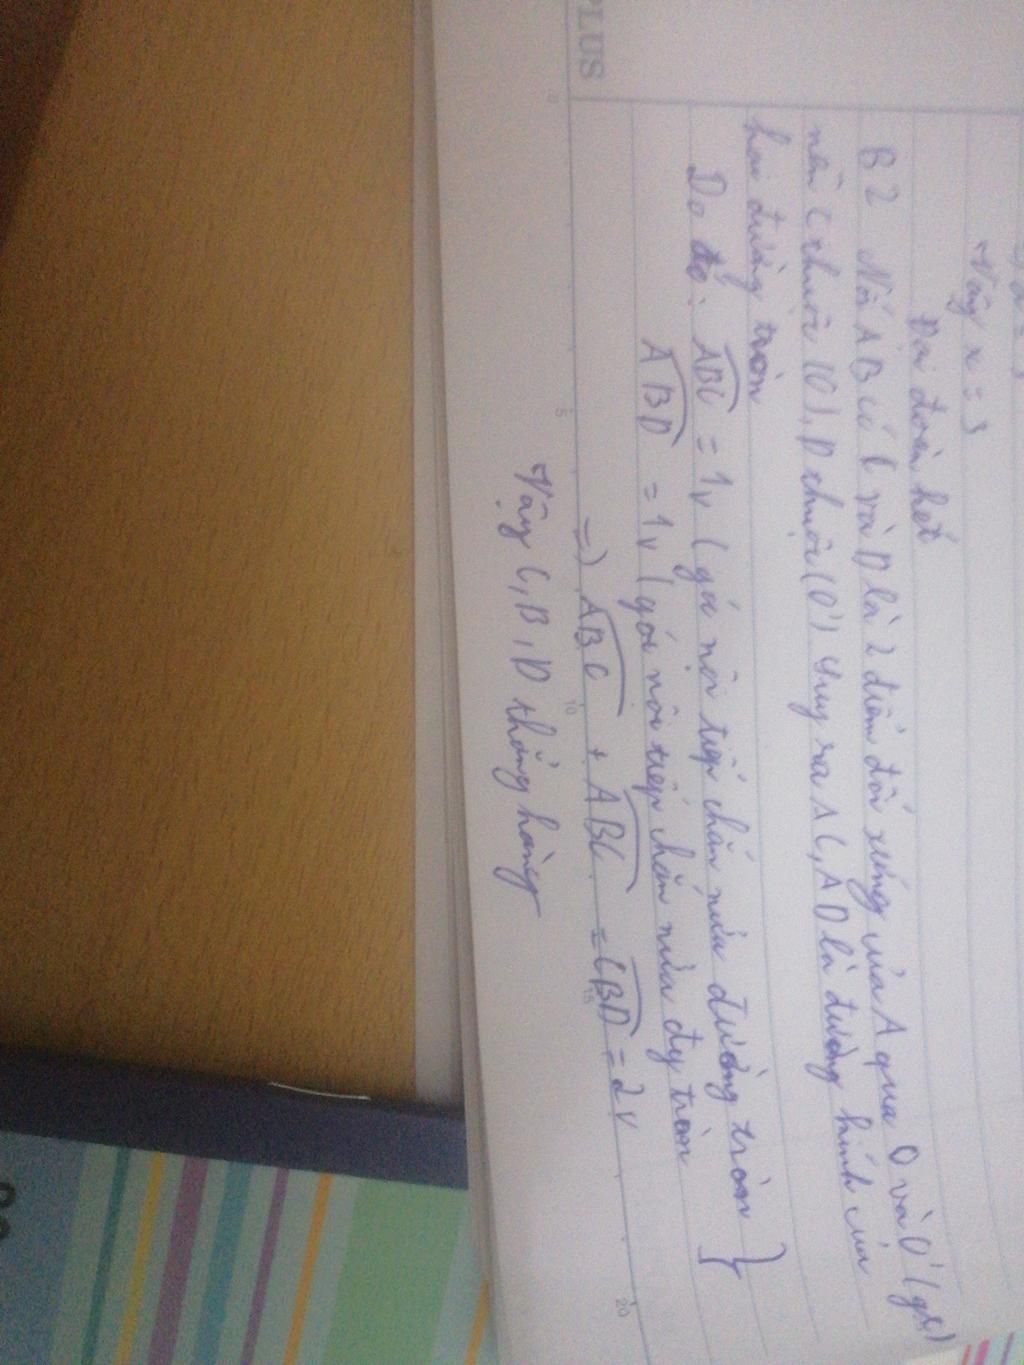 Vậy x = 3
Đại đoàn hết
B2 Nối AB có C và D là 2 điểm đối xứng của A qua O và O' (gt)
nên C thuộc (O), D thuộc (O') suy ra AC, AD là đường kính của
hai đường tròn
Do đó: ABC = 1v (góc nội tiếp chắn nửa đường tròn }
ABD = 1v (góc nội tiếp chắn nửa đg tròn
=> ABC + ABC = CBD = 2v
Vậy C, B, D thẳng hàng
PLUS
0 5 10 15 20